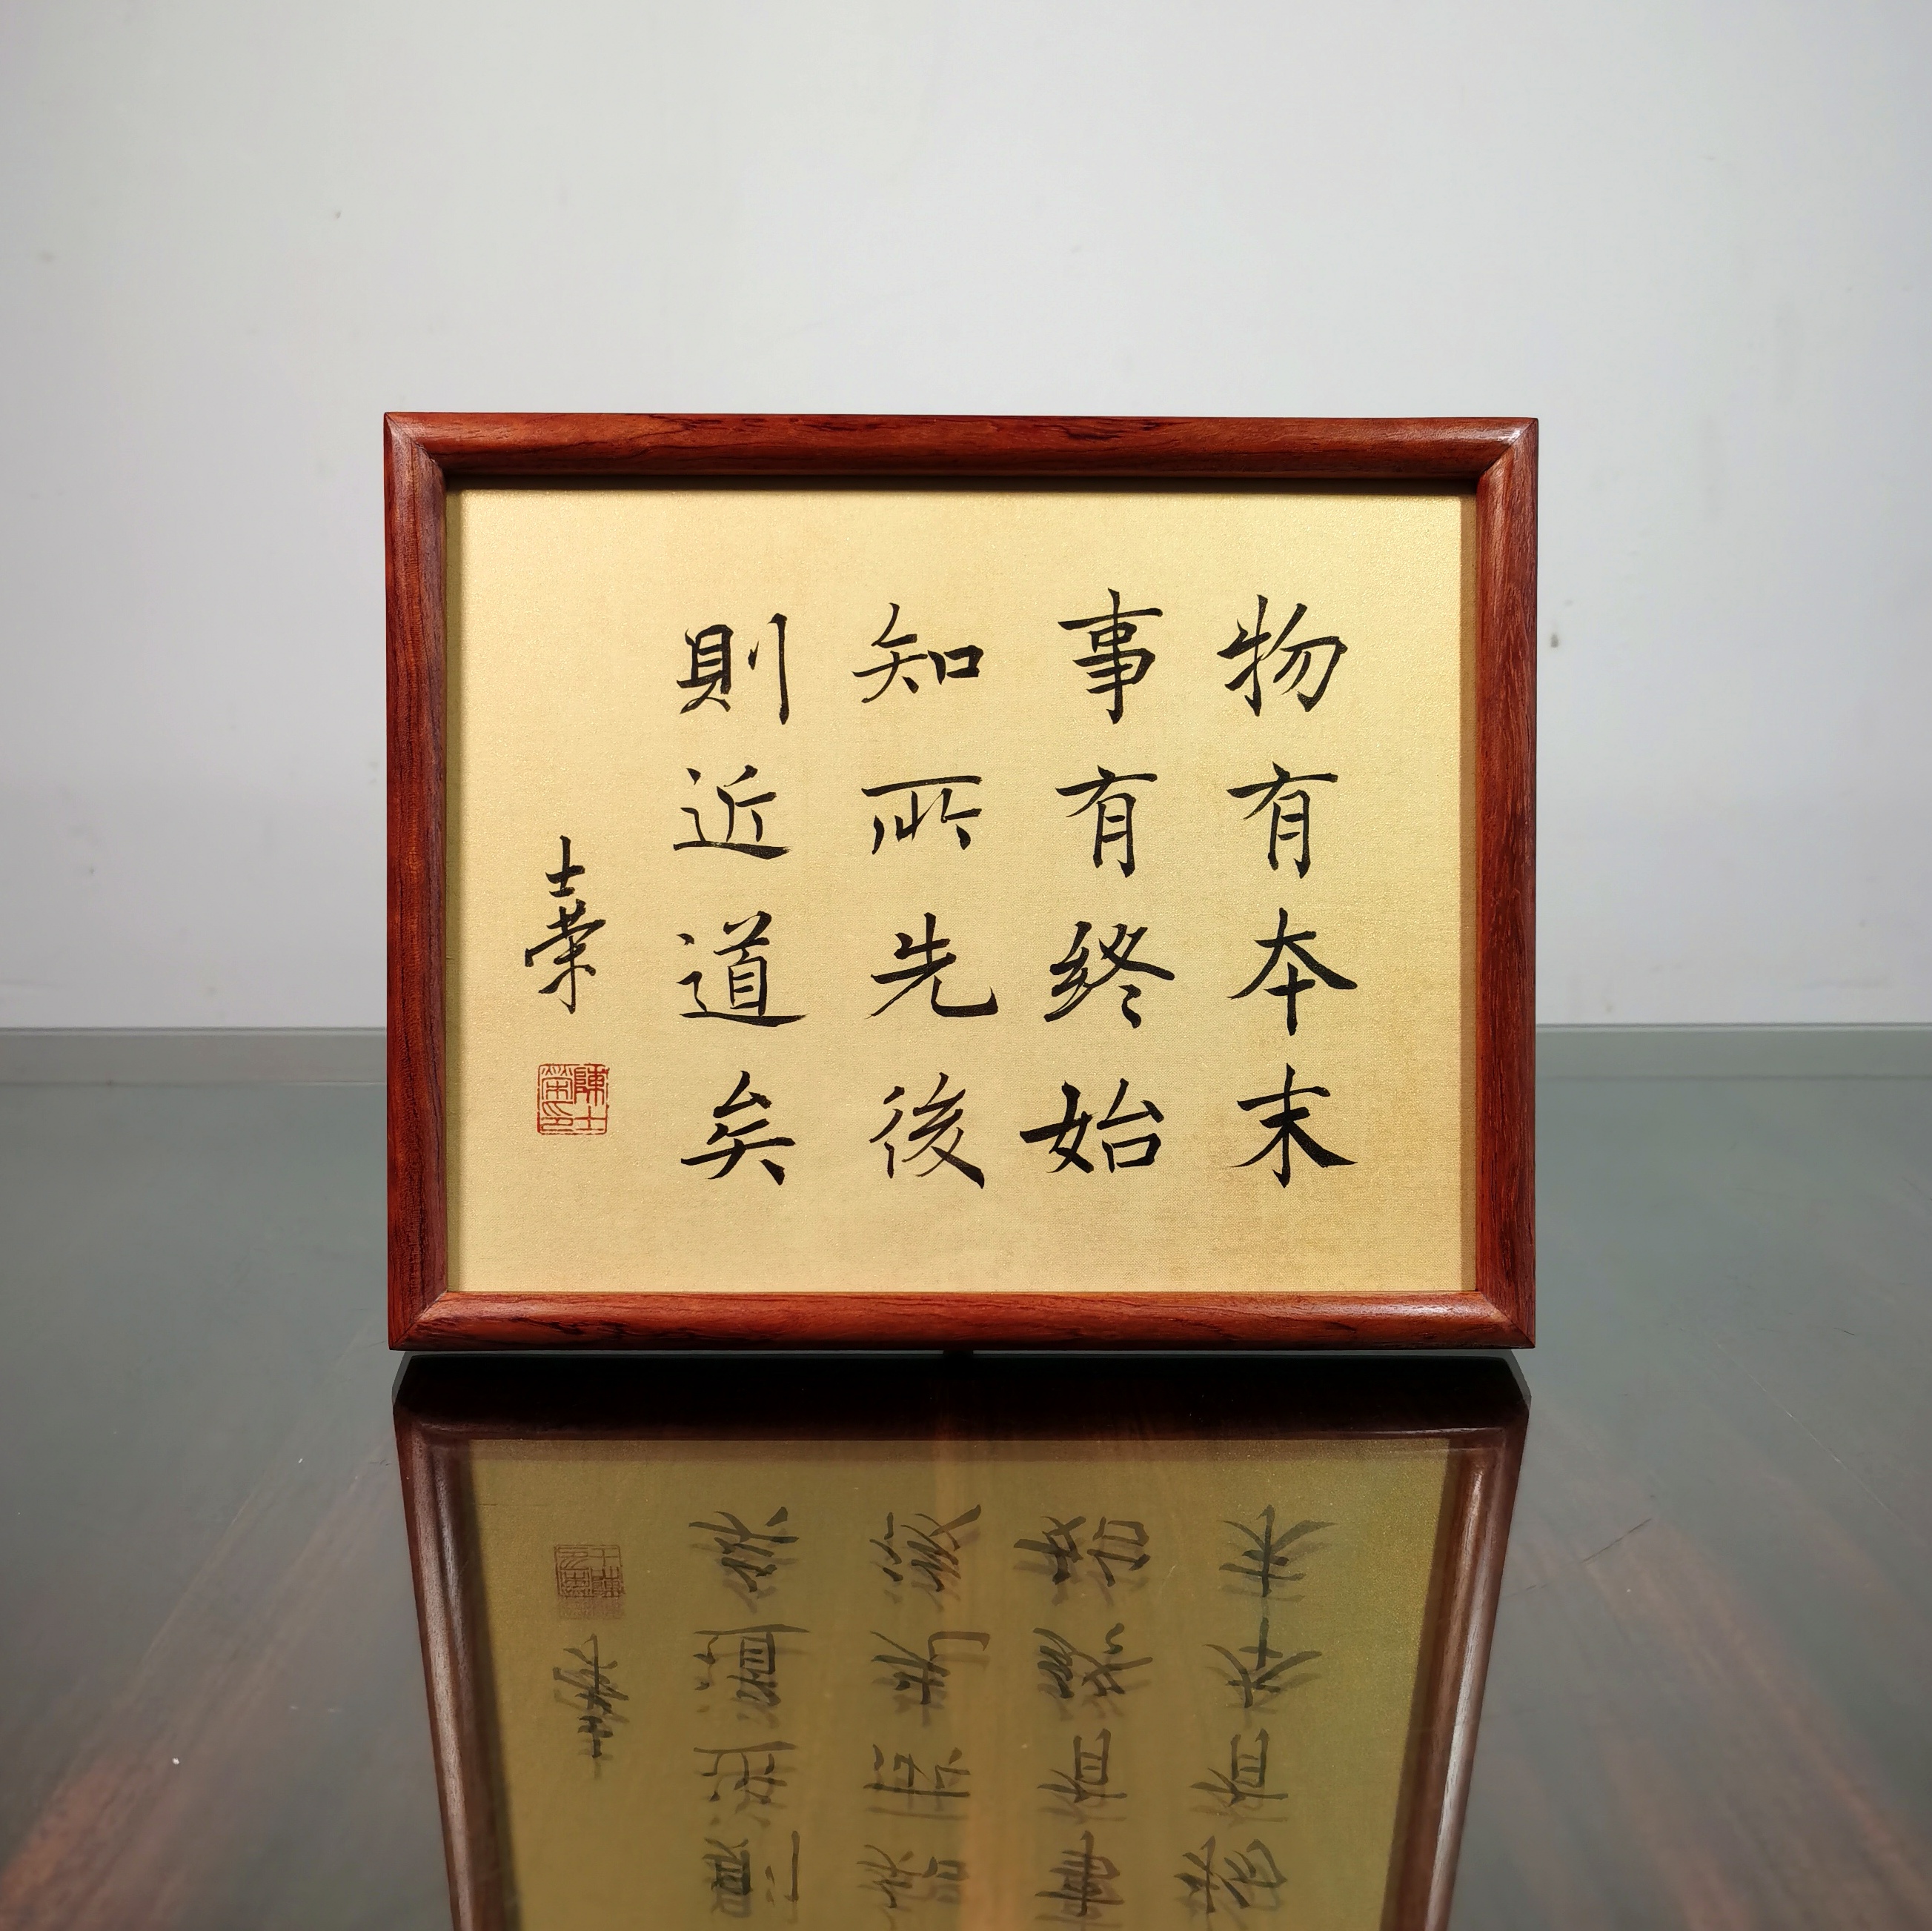 物有本末
事有終始
知所先後
則近道矣
士榮
陳士榮印